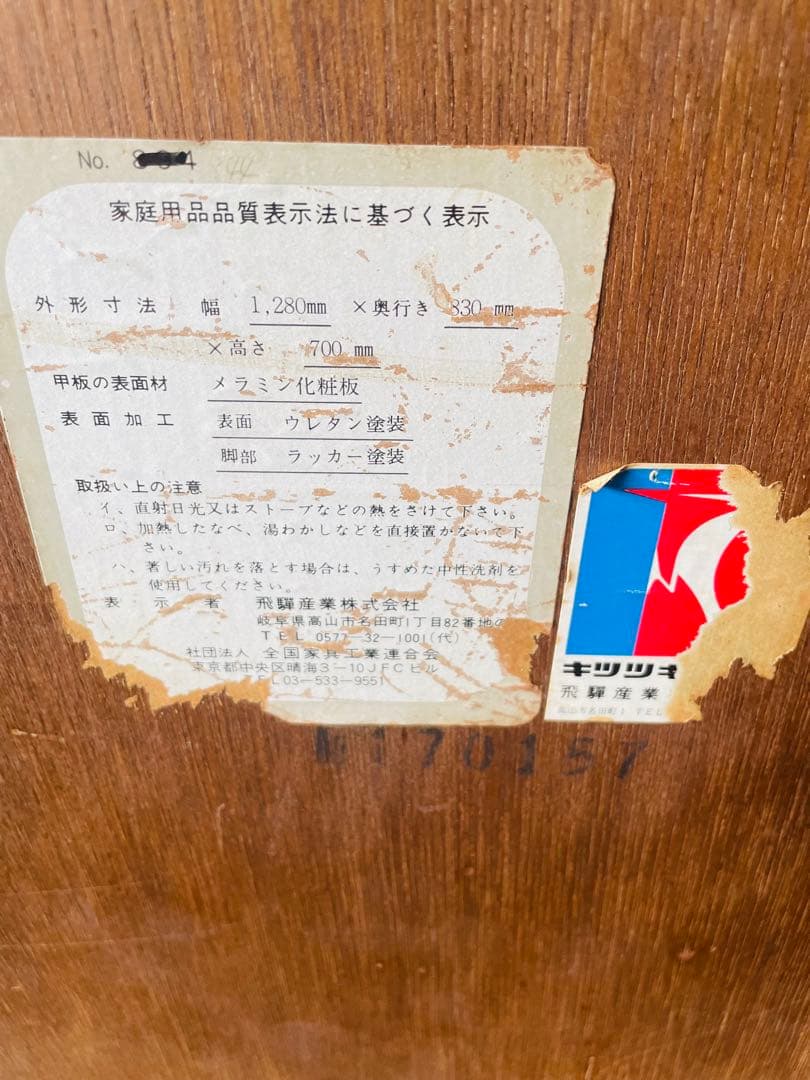 No. 844
家庭用品品質表示法に基づく表示
外形寸法 幅 1,280mm ×奥行き 830 mm
×高さ 700 mm
甲板の表面材 メラミン化粧板
表面加工 表面 ウレタン塗装
脚部 ラッカー塗装
取扱い上の注意
イ、直射日光又はストーブなどの熱をさけて下さい。
ロ、加熱したなべ、湯わかしなどを直接置かないで下
さい。
ハ、著しい汚れを落とす場合は、うすめた中性洗剤を
使用してください。
表示者 飛騨産業株式会社
岐阜県高山市名田町1丁目82番地の
TEL 0577-32-1001(代)
社団法人 全国家具工業連合会
東京都中央区晴海3-10JFCビル
TEL03-533-9551
キツツキ
飛騨産業
高山市名田町1 TEL
170157